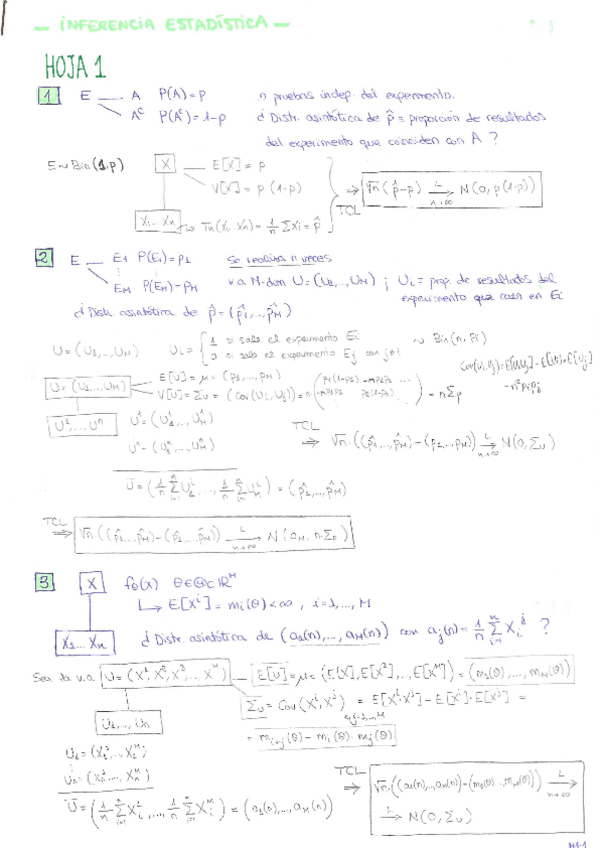 — INFERENCIA ESTADÍSTICA —
HOJA 1
1 E A P(A)=p n pruebas indep. del experimento.
A^c P(A^c)=1-p ¿Distr. asintótica de p̂ = proporción de resultados
del experimento que coinciden con A?
E~Bin(1,p) X E[X] = p
V[X] = p(1-p)
TCL ⇒ √n(p̂-p) →^L_{n→∞} N(0, p(1-p))
X₁...Xₙ → Tn(X₁...Xₙ) = 1/n ΣXi = p̂
2 E E₁ P(E₁)=p₁ se realiza n veces
E_M P(E_M)=p_M v.a M-dim U=(U₁,...,U_M) ; Ui = prop. de resultados del
experimento que caen en Ei
¿Distr. asintótica de p̂=(p̂₁,...,p̂_M)
U=(U₁,...,U_M) Ui = { 1 si sale el experimento Ei ~ Bin(n, Pi)
0 si sale el experimento Ej con j≠i
Cov(Ui,Uj)=E[UiUj]-E[Ui]·E[Uj]
U=(U₁,...,U_M) E[U]=μ=(p₁,...,p_M)
V[U]=Σu = (Cov(Ui,Uj)) = = nΣp
U¹,...,Uⁿ U¹=(U₁¹,...,U_M¹)
Uⁿ=(U₁ⁿ,...,U_Mⁿ)
TCL ⇒ √n·((p̂₁,...,p̂_M)-(p₁,...,p_M)) →^L_{n→∞} N(0,Σu)
Ū=(1/n ΣU₁ⁱ,...,1/n ΣU_Mⁱ) = (p̂₁,...,p̂_M)
TCL ⇒ √n·((p̂₁,...,p̂_M)-(p₁,...,p_M)) →^L_{n→∞} N(0_M, n·Σp)
3 X fθ(x) θ∈Θ⊂ℝ^M
→ E[Xⁱ] = mi(θ) < ∞, i=1,...,M
X₁...Xₙ ¿Distr. asintótica de (a₁(n),...,a_M(n)) con aj(n) = 1/n Σ_{i=1}^n Xi^j ?
Sea la v.a U=(X¹,X²,X³,...,X^M) E[U]=μ=(E[X],E[X²],...,E[X^M])=(m₁(θ),...,m_M(θ))
Σu = Cov(Xⁱ,X^j) = E[Xⁱ·X^j]-E[Xⁱ]·E[X^j] =
i,j=1,...,M
U₁,...,Un = m_{i+j}(θ) - mi(θ)·mj(θ)
U₁=(X₁¹,...,X₁^M)
Un=(Xn¹,...,Xn^M)
Ū=(1/n Σ_{i=1}^n Xi¹,...,1/n Σ_{i=1}^n Xi^M) = (a₁(n),...,a_M(n))
TCL ⇒ √n·((a₁(n),...,a_M(n))-(m₁(θ),...,m_M(θ))) →^L_{n→∞}
→^L N(0,Σu)
H1-1